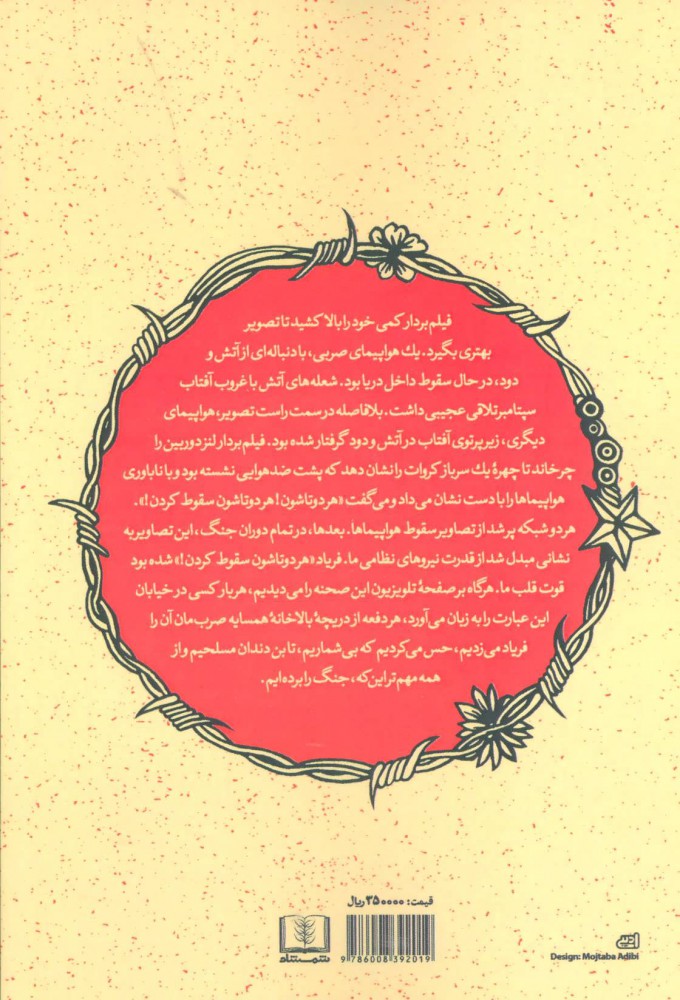 فیلم‌بردار کمی خود را بالا کشید تا تصویر
بهتری بگیرد. یك هواپیمای صربی، با دنباله‌ای از آتش و
دود، در حال سقوط داخل دریا بود. شعله‌های آتش با غروب آفتاب
سپتامبر تلاقی عجیبی داشت. بلافاصله در سمت راست تصویر، هواپیمای
دیگری، زیر پرتوی آفتاب در آتش و دود گرفتار شده بود. فیلم‌بردار لنز دوربین را
چرخاند تا چهرهٔ یك سرباز کروات را نشان دهد که پشت ضدهوایی نشسته بود و با ناباوری
هواپیماها را با دست نشان می‌داد و می‌گفت «هر دوتاشون! هر دوتاشون سقوط کردن!».
هر دو شبکه پر شد از تصاویر سقوط هواپیماها. بعدها، در تمام دوران جنگ، این تصاویر به
نشانی مبدل شد از قدرت نیروهای نظامی ما. فریاد «هر دوتاشون سقوط کردن!» شده بود
قوت قلب ما. هرگاه بر صفحهٔ تلویزیون این صحنه را می‌دیدیم، هر بار کسی در خیابان
این عبارت را به زبان می‌آورد، هر دفعه از دریچهٔ بالاخانهٔ همسایه صرب‌مان آن را
فریاد می‌زدیم، حس می‌کردیم که بی‌شماریم، تا بن دندان مسلحیم و از
همه مهم‌تر این‌که، جنگ را برده‌ایم.
قیمت: ۳۵۰۰۰۰ ریال
شمشاد
9 786008 392019
Design: Mojtaba Adibi